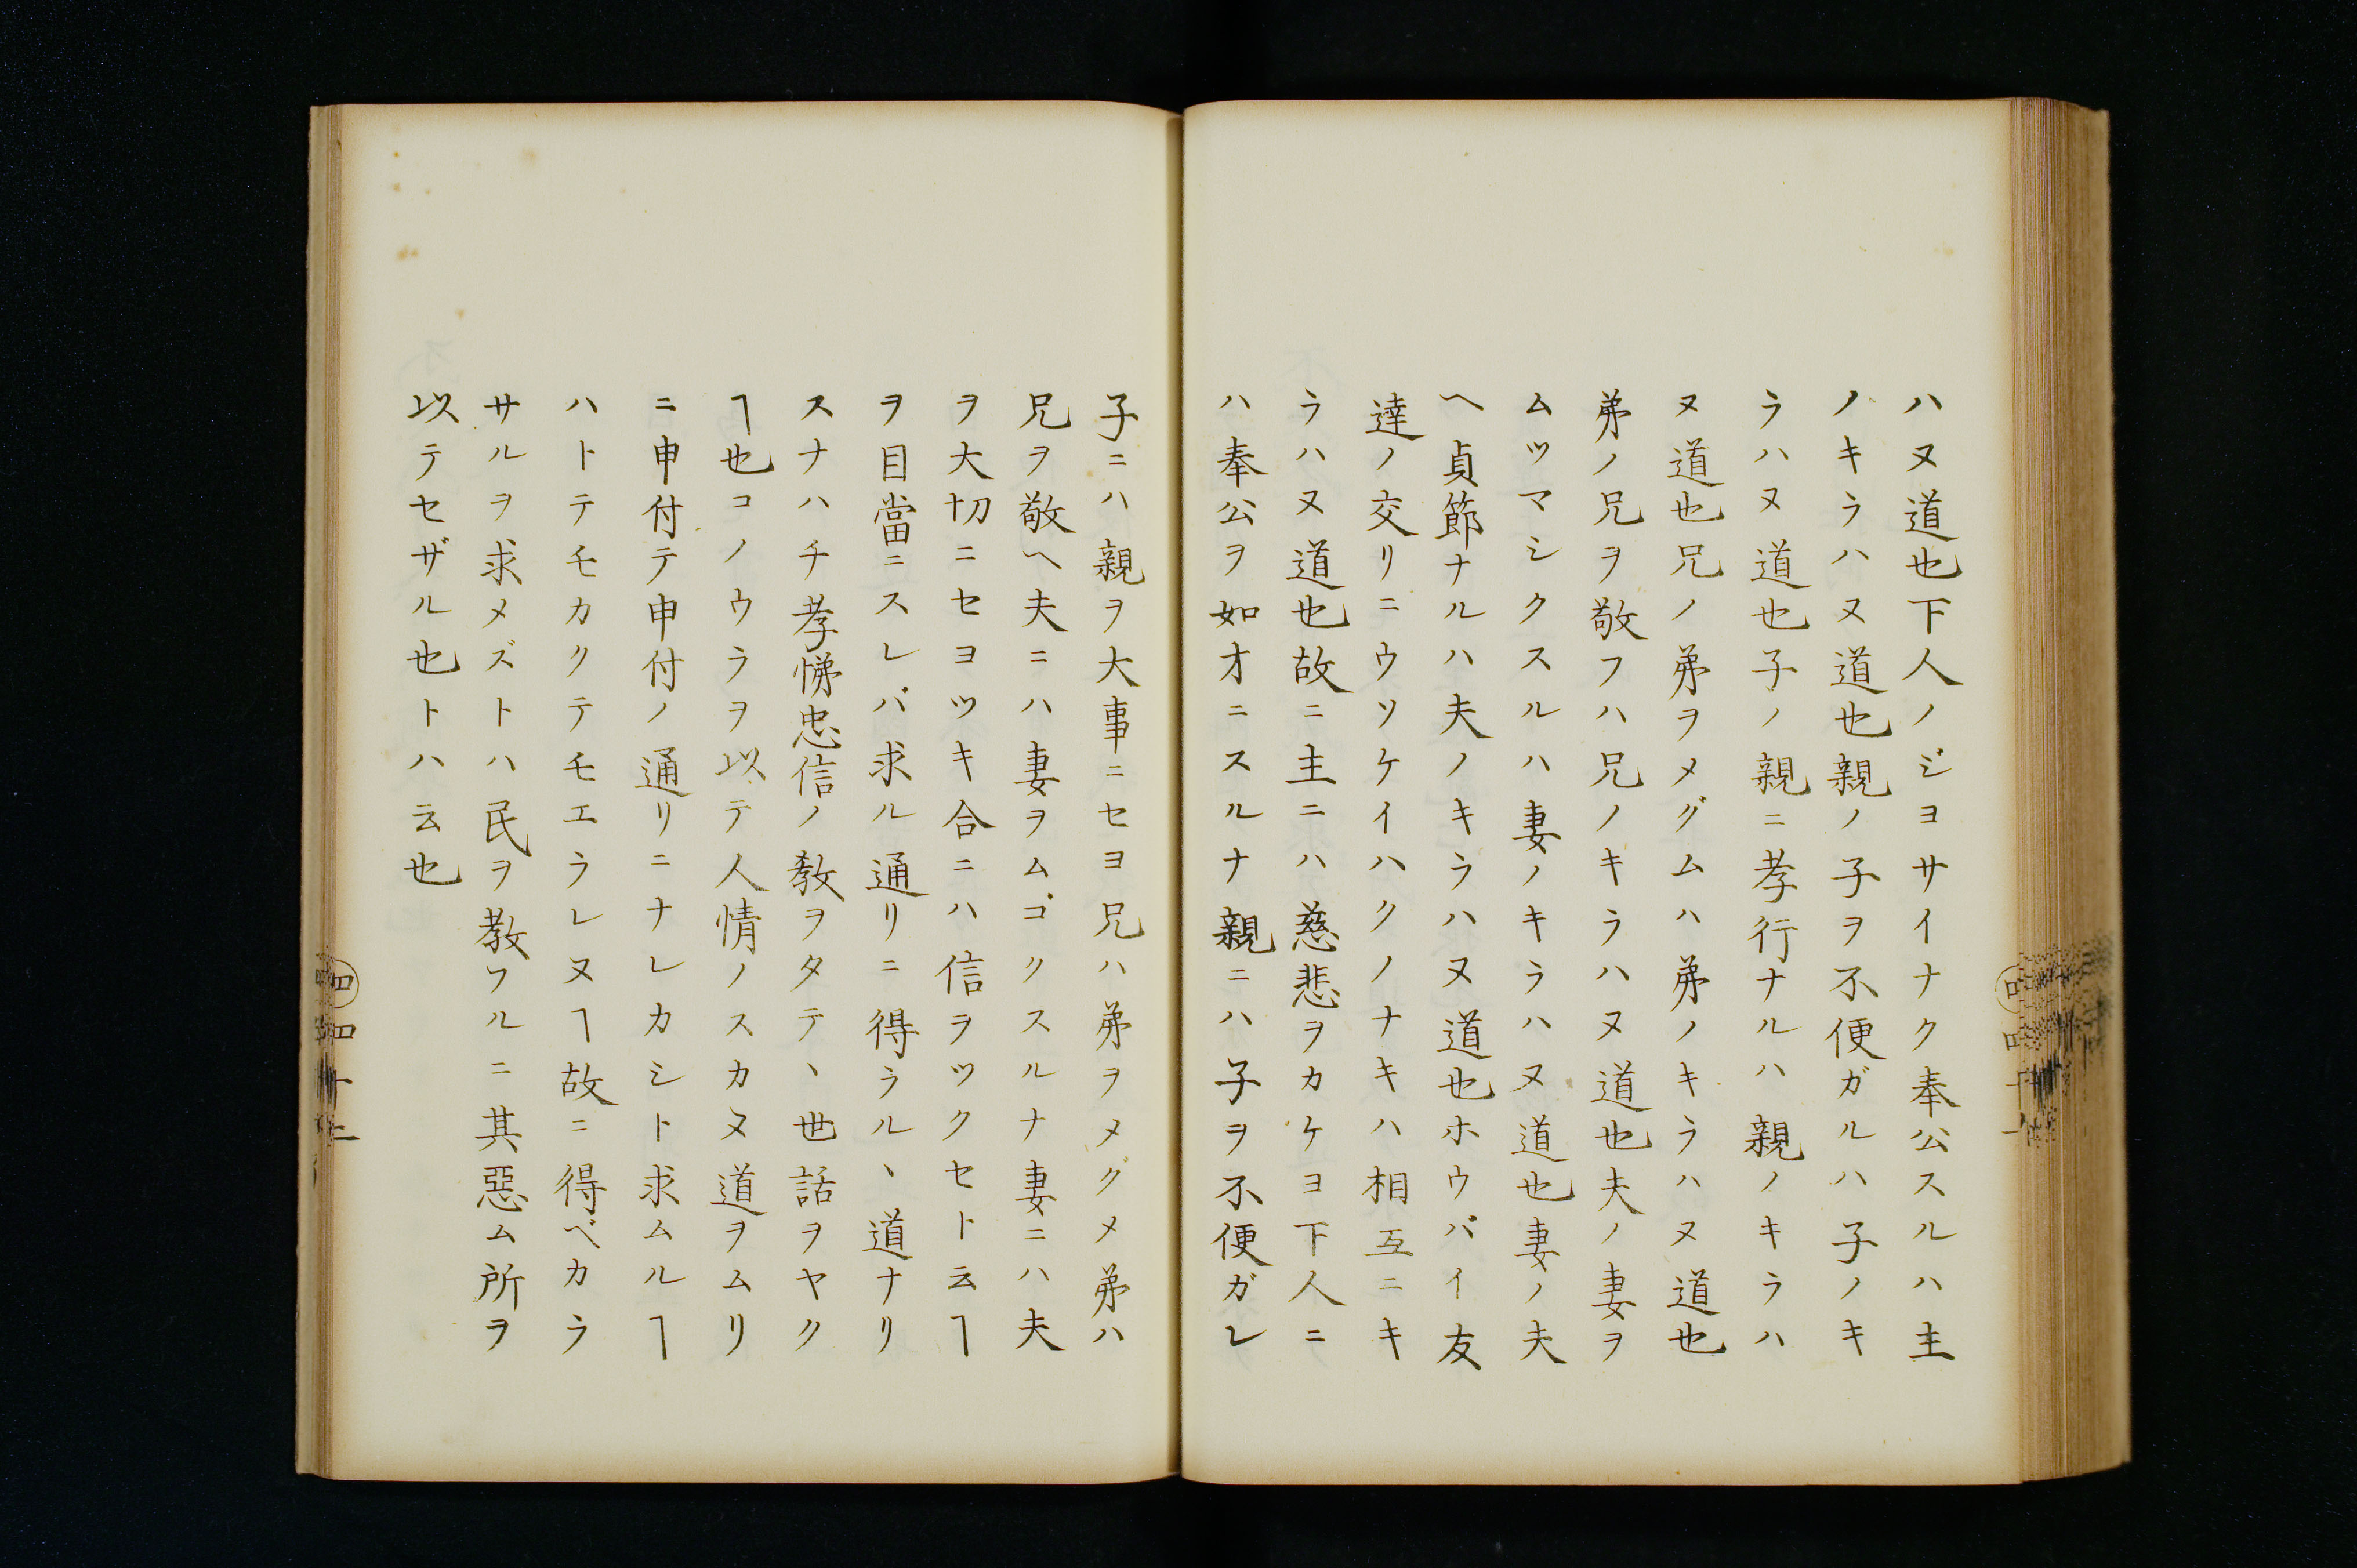 ハヌ道也下人ノジヨサイナク奉公スルハ主
ノキラハヌ道也親ノ子ヲ不便ガルハ子ノキ
ラハヌ道也子ノ親ニ孝行ナルハ親ノキラハ
ヌ道也兄ノ弟ヲメグムハ弟ノキラハヌ道也
弟ノ兄ヲ敬フハ兄ノキラハヌ道也夫ノ妻ヲ
ムツマシクスルハ妻ノキラハヌ道也妻ノ夫
ヘ貞節ナルハ夫ノキラハヌ道也ホウバイ友
達ノ交リニウソケイハクノナキハ相互ニキ
ラハヌ道也故ニ主ニハ慈悲ヲカケヨ下人ニ
ハ奉公ヲ如才ニスルナ親ニハ子ヲ不便ガレ
子ニハ親ヲ大事ニセヨ兄ハ弟ヲメクメ弟ハ
兄ヲ敬ヘ夫ニハ妻ヲムゴクスルナ妻ニハ夫
ヲ大切ニセヨツキ合ニハ信ヲツクセト云ヿ
ヲ目當ニスレバ求ル通リニ得ラルヽ道ナリ
スナハチ孝悌忠信ノ教ヲタテヽ世話ヲヤク
ヿ也コノウラヲ以テ人情ノスカヌ道ヲムリ
ニ申付テ申付ノ通リニナレカシト求ムルヿ
ハトテモカクテモエラレヌヿ故ニ得ベカラ
サルヲ求メズトハ民ヲ教フルニ其惡ム所ヲ
以テセザル也トハ云也
四 四十二